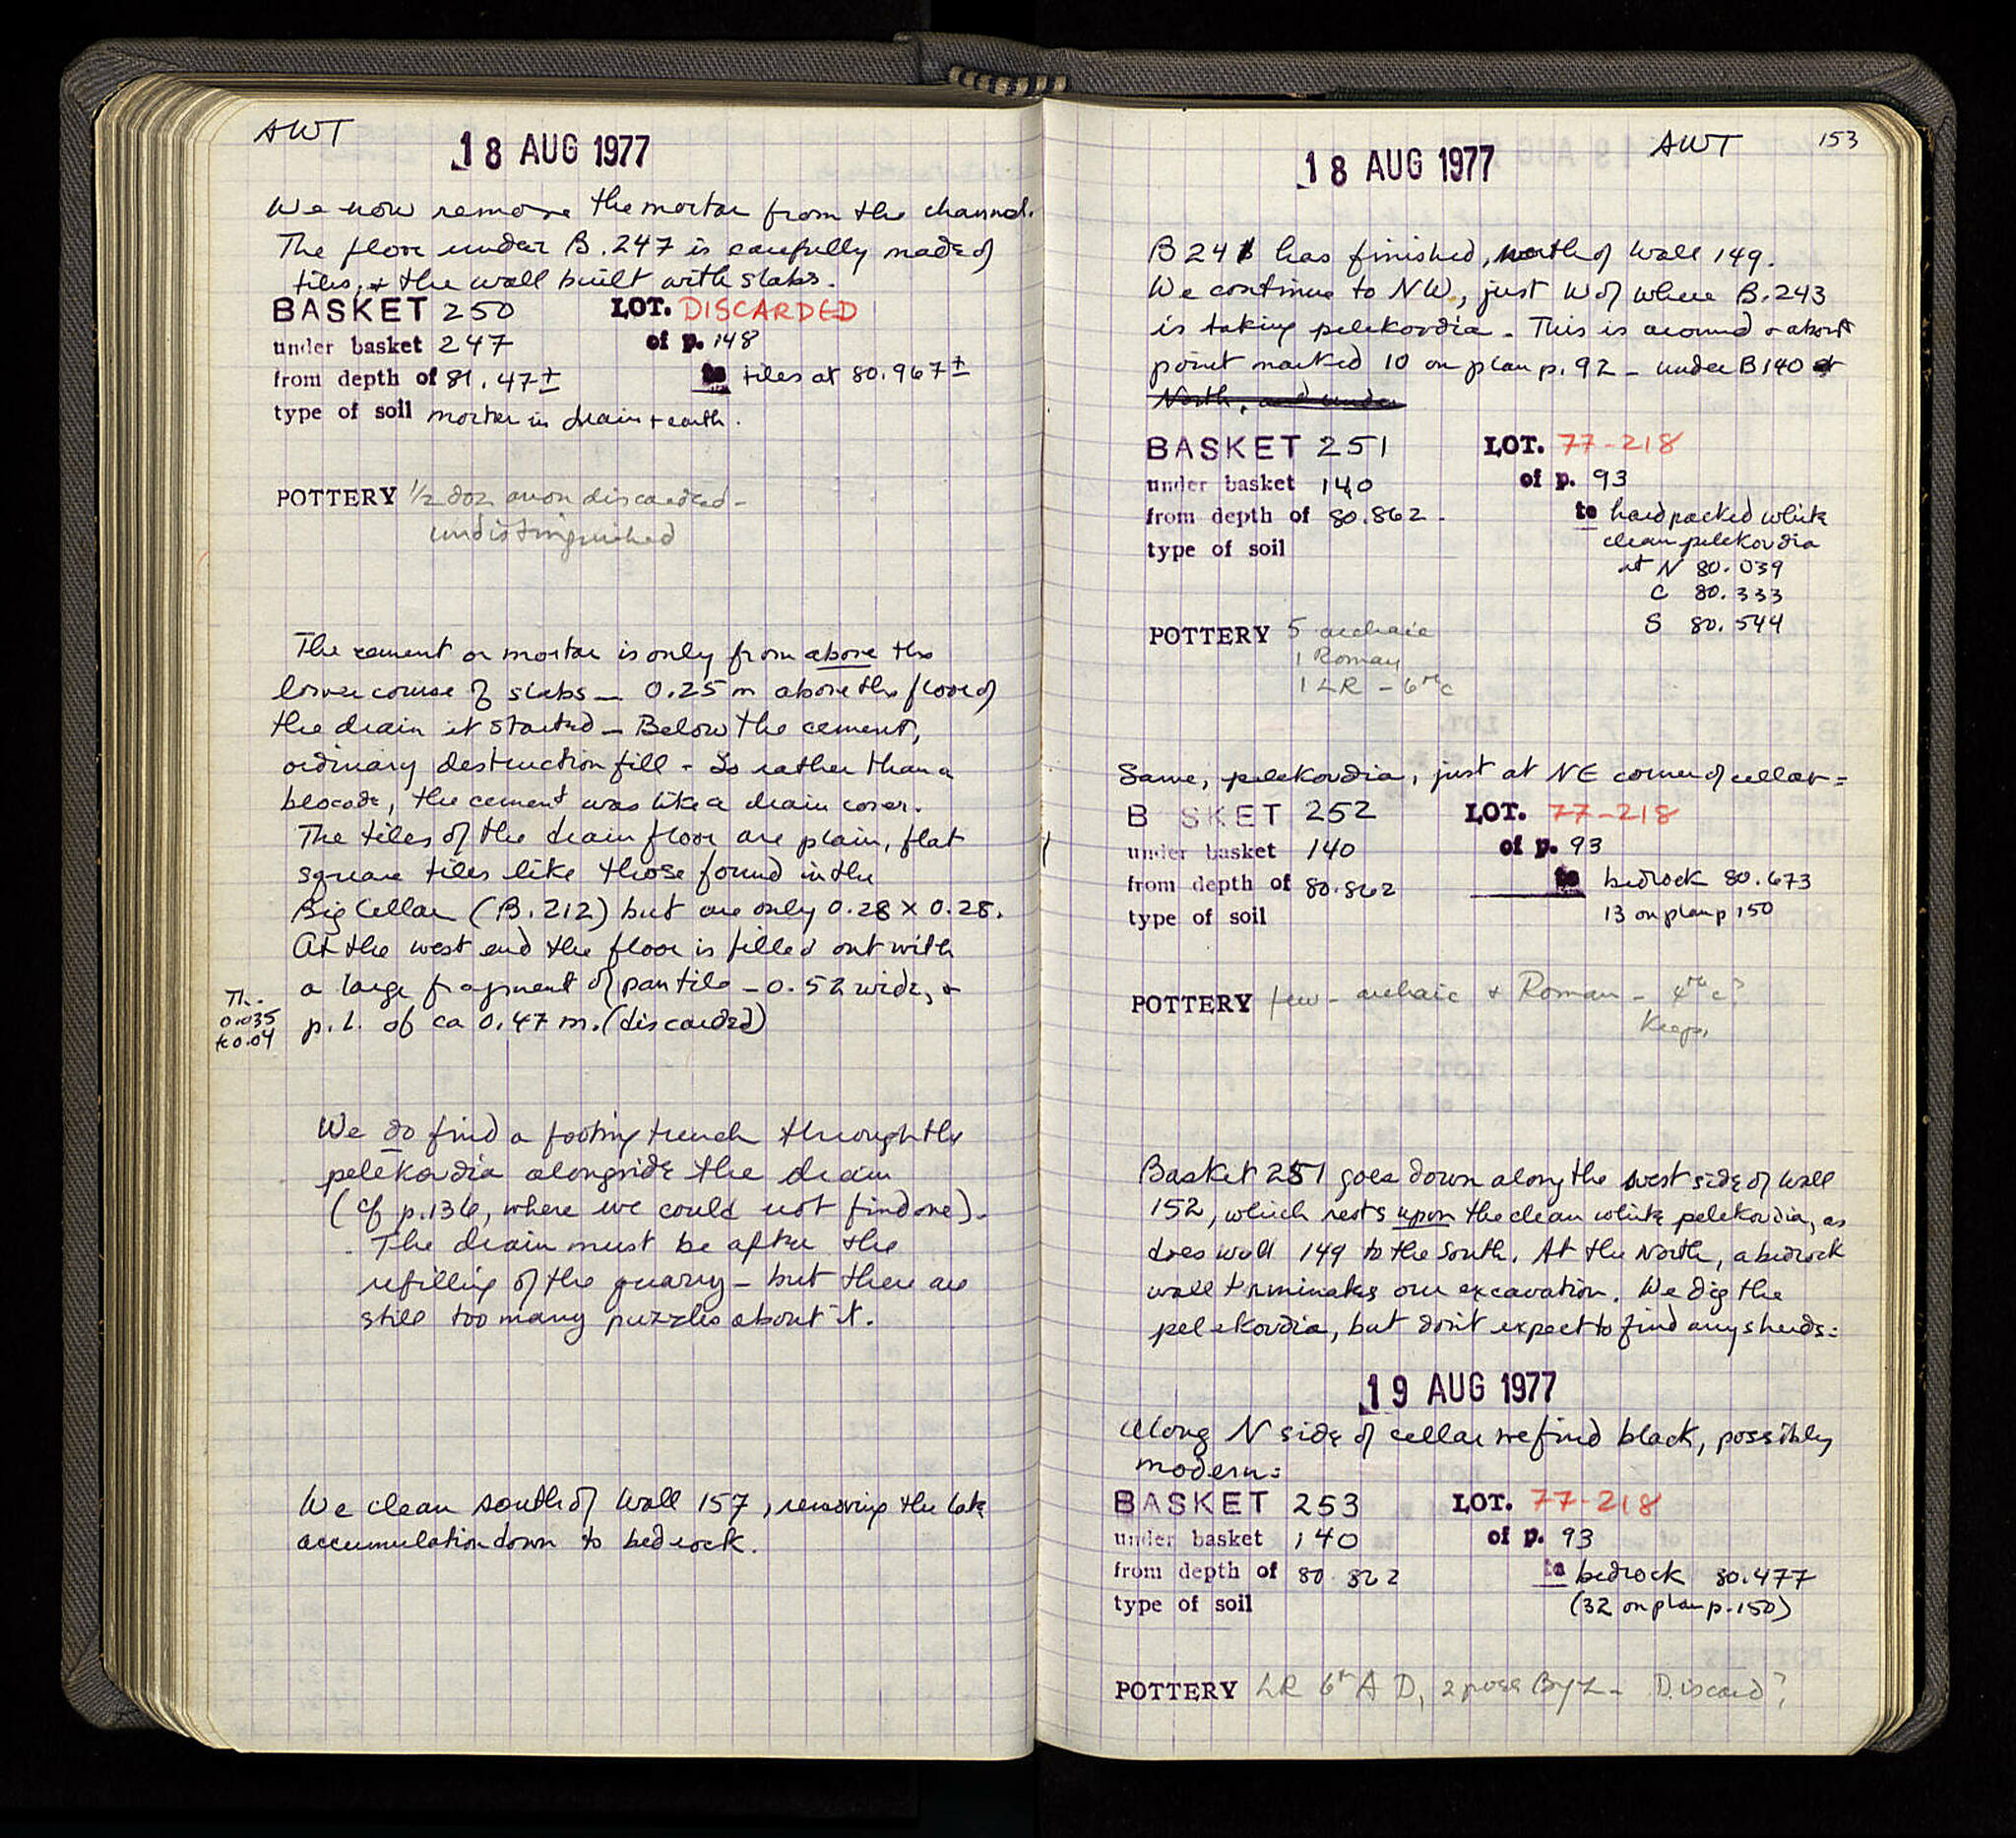 AWT
18 AUG 1977
We now remove the mortar from the channel.
The floor under B.247 is carefully made of
tiles, & the wall built with slabs.
BASKET 250 LOT. DISCARDED
under basket 247 of p. 148
from depth of 81.47± to tiles at 80.967±
type of soil mortar in drain + earth.
POTTERY 1/2 doz anon discarded -
undistinguished
The cement or mortar is only from above the
lower course of slabs - 0.25 m above the floor of
the drain it started - Below the cement,
ordinary destruction fill - So rather than a
blocade, the cement was like a drain cover.
The tiles of the drain floor are plain, flat
square tiles like those found in the
Big Cellar (B.212) but are only 0.28 x 0.28.
At the west end the floor is filled out with
a large fragment of pan tile - 0.52 wide, &
Th.
0.035
to 0.04
p.l. of ca 0.47 m. (discarded)
We do find a footing trench through the
pelekoudia alongside the drain
(cf p.136, where we could not find one).
The drain must be after the
refilling of the quarry - but there are
still too many puzzles about it.
We clean south of Wall 157, removing the late
accumulation down to bedrock.
AWT 153
18 AUG 1977
B 241 has finished, north of Wall 149.
We continue to NW, just W of where B.243
is taking pelekoudia. This is around & about
point marked 10 on plan p.92 - under B140
North, and under
BASKET 251 LOT. 77-218
under basket 140 of p. 93
from depth of 80.862. to hard packed white
clean pelekoudia
type of soil
at N 80.039
C 80.333
S 80.544
POTTERY 5 archaic
1 Roman
1 LR - 6th c
Same, pelekoudia, just at NE corner of cellar =
B SKET 252 LOT. 77-218
under basket 140 of p. 93
from depth of 80.862 to bedrock 80.673
type of soil 13 on plan p 150
POTTERY few - archaic & Roman - 4th c?
Keep,
Basket 251 goes down along the west side of Wall
152, which rests upon the clean white pelekoudia, as
does wall 149 to the South. At the North, a bedrock
wall terminates our excavation. We dig the
pelekoudia, but don't expect to find any sherds:
19 AUG 1977
Along N side of cellar we find black, possibly
modern:
BASKET 253 LOT. 77-218
under basket 140 of p. 93
from depth of 80 862 to bedrock 80.477
type of soil (32 on plan p.150)
POTTERY LR 6th A D, 2 poss Byz - Discard?